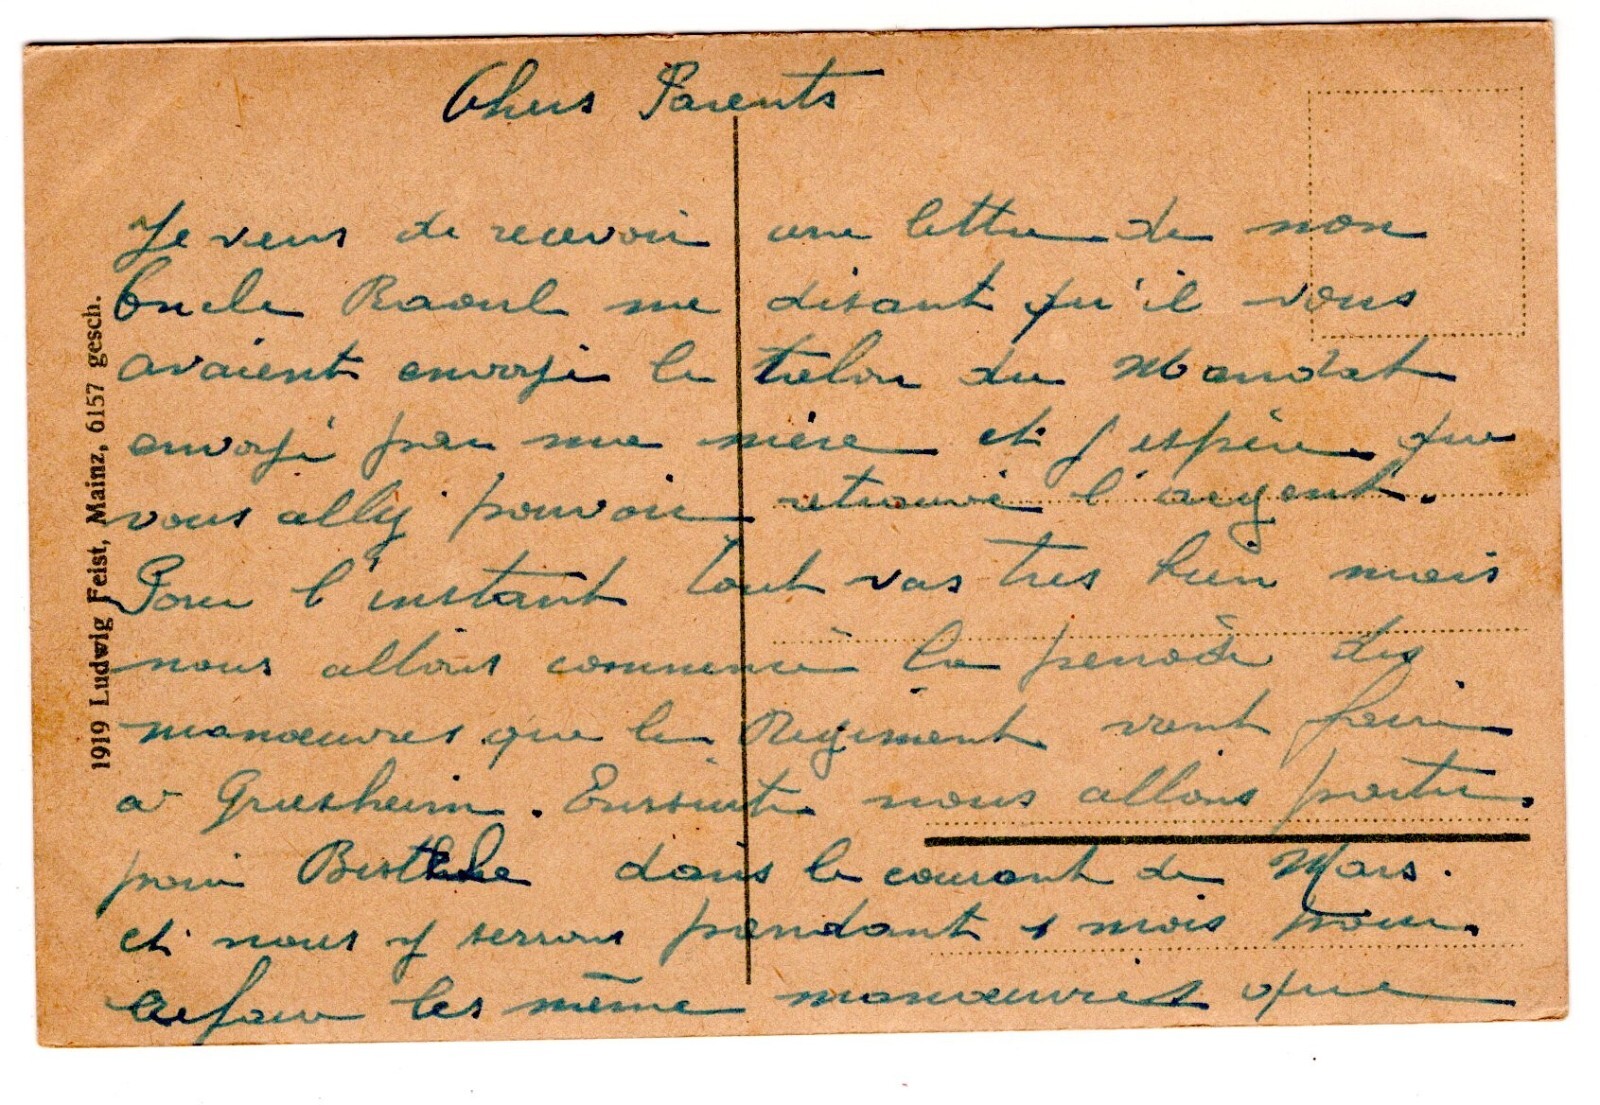 Chers Parents
Je viens de recevoir une lettre de mon
Oncle Raoul me disant qu'il vous
avaient envoyé le talon du Mandat
envoyé par ma mère et j'espère que
vous allez pouvoir retrouvé l'argent.
Pour l'instant tout vas très bien mais
nous allons commencé la periode des
manœuvres que le Régiment vont faire
a Griesheim. Enssuite nous allons partir
pour dans le courant de Mars.
et nous y serrons pendant 1 mois pour
refaire les même manœuvres que
1919 Ludwig Feist, Mainz, 6157 gesch.